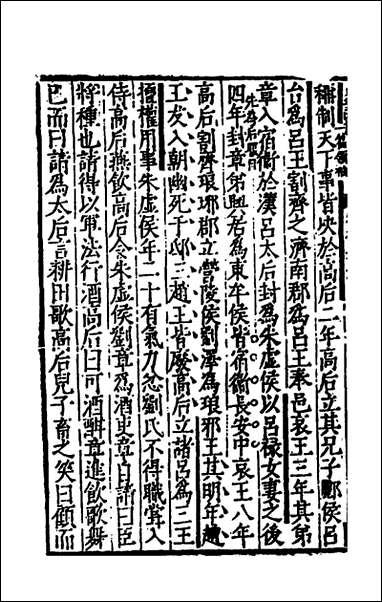 稱制天下事皆決於高后二年高后立其兄子酈侯呂
台爲呂王割齊之濟南郡爲呂王奉邑哀王三年其弟
章入宿衞於漢呂太后封爲朱虛侯以呂祿女妻之後
四年封章弟興居爲東牟侯皆宿衞長安中哀王八年
高后割齊琅琊郡立營陵侯劉澤爲琅邪王其明年趙
王友入朝幽死于邸三趙王皆廢高后立諸呂爲三王
擅權用事朱虛侯年二十有氣力忿劉氏不得職嘗入
侍高后燕飲高后令朱虛侯劉章爲酒吏章自請曰臣
將種也請得以軍法行酒高后曰可酒酣章進飲歌舞
已而曰請爲太后言耕田歌高后兒子畜之笑曰顧而